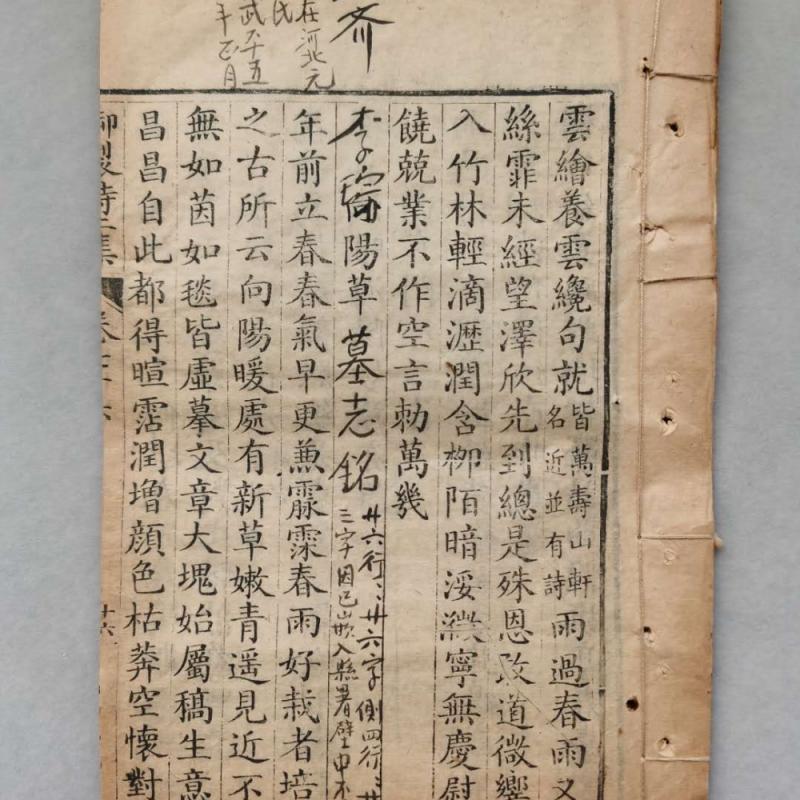 雲繪養雲纔句就皆萬壽山軒名近並有詩雨過春雨又
絲霏未經望澤欣先到總是殊恩敢道微響
入竹林輕滴瀝潤含柳陌暗浸縠寧無慶慰
饒兢業不作空言勅萬幾
李 陽草墓志銘廿六行 廿六字側四行
三字因已嵌入縣署壁中不
年前立春春氣早更兼霡霂春雨好栽者培
之古所云向陽暖處有新草嫩青遥見近不
無如茵如毯皆虛摹文章大塊始屬稿生意
昌昌自此都得暄霑潤增顔色枯莽空懷對
御製詩 集 卷 六 廿六
齐
在河北元
氏
武 十五
年正月